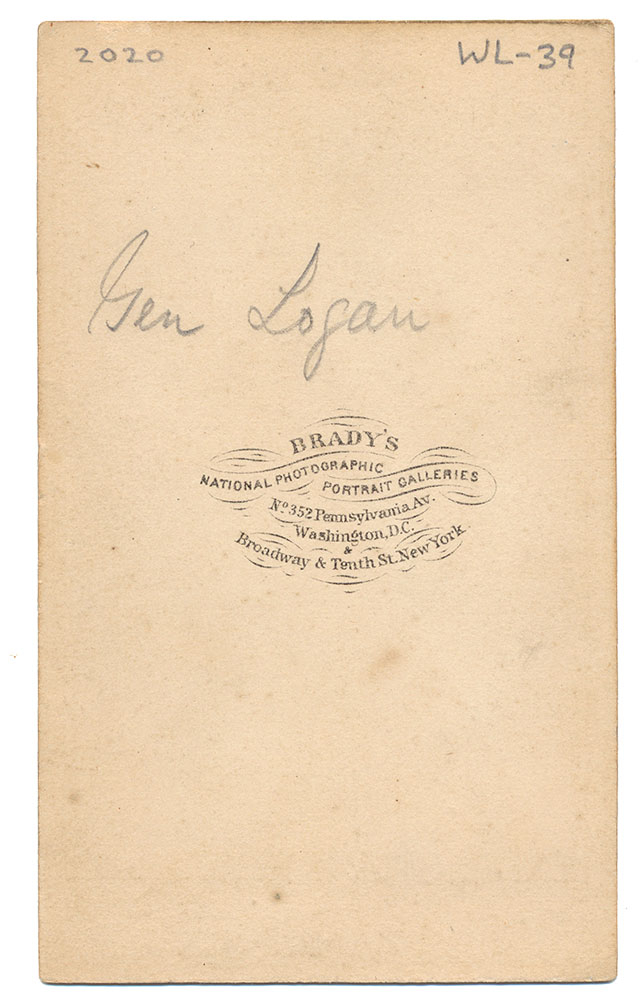 2020 WL-39
Gen Logan
BRADY'S
NATIONAL PHOTOGRAPHIC
PORTRAIT GALLERIES
Nº 352 Pennsylvania Av.
Washington, D.C.
&
Broadway & Tenth St. New York